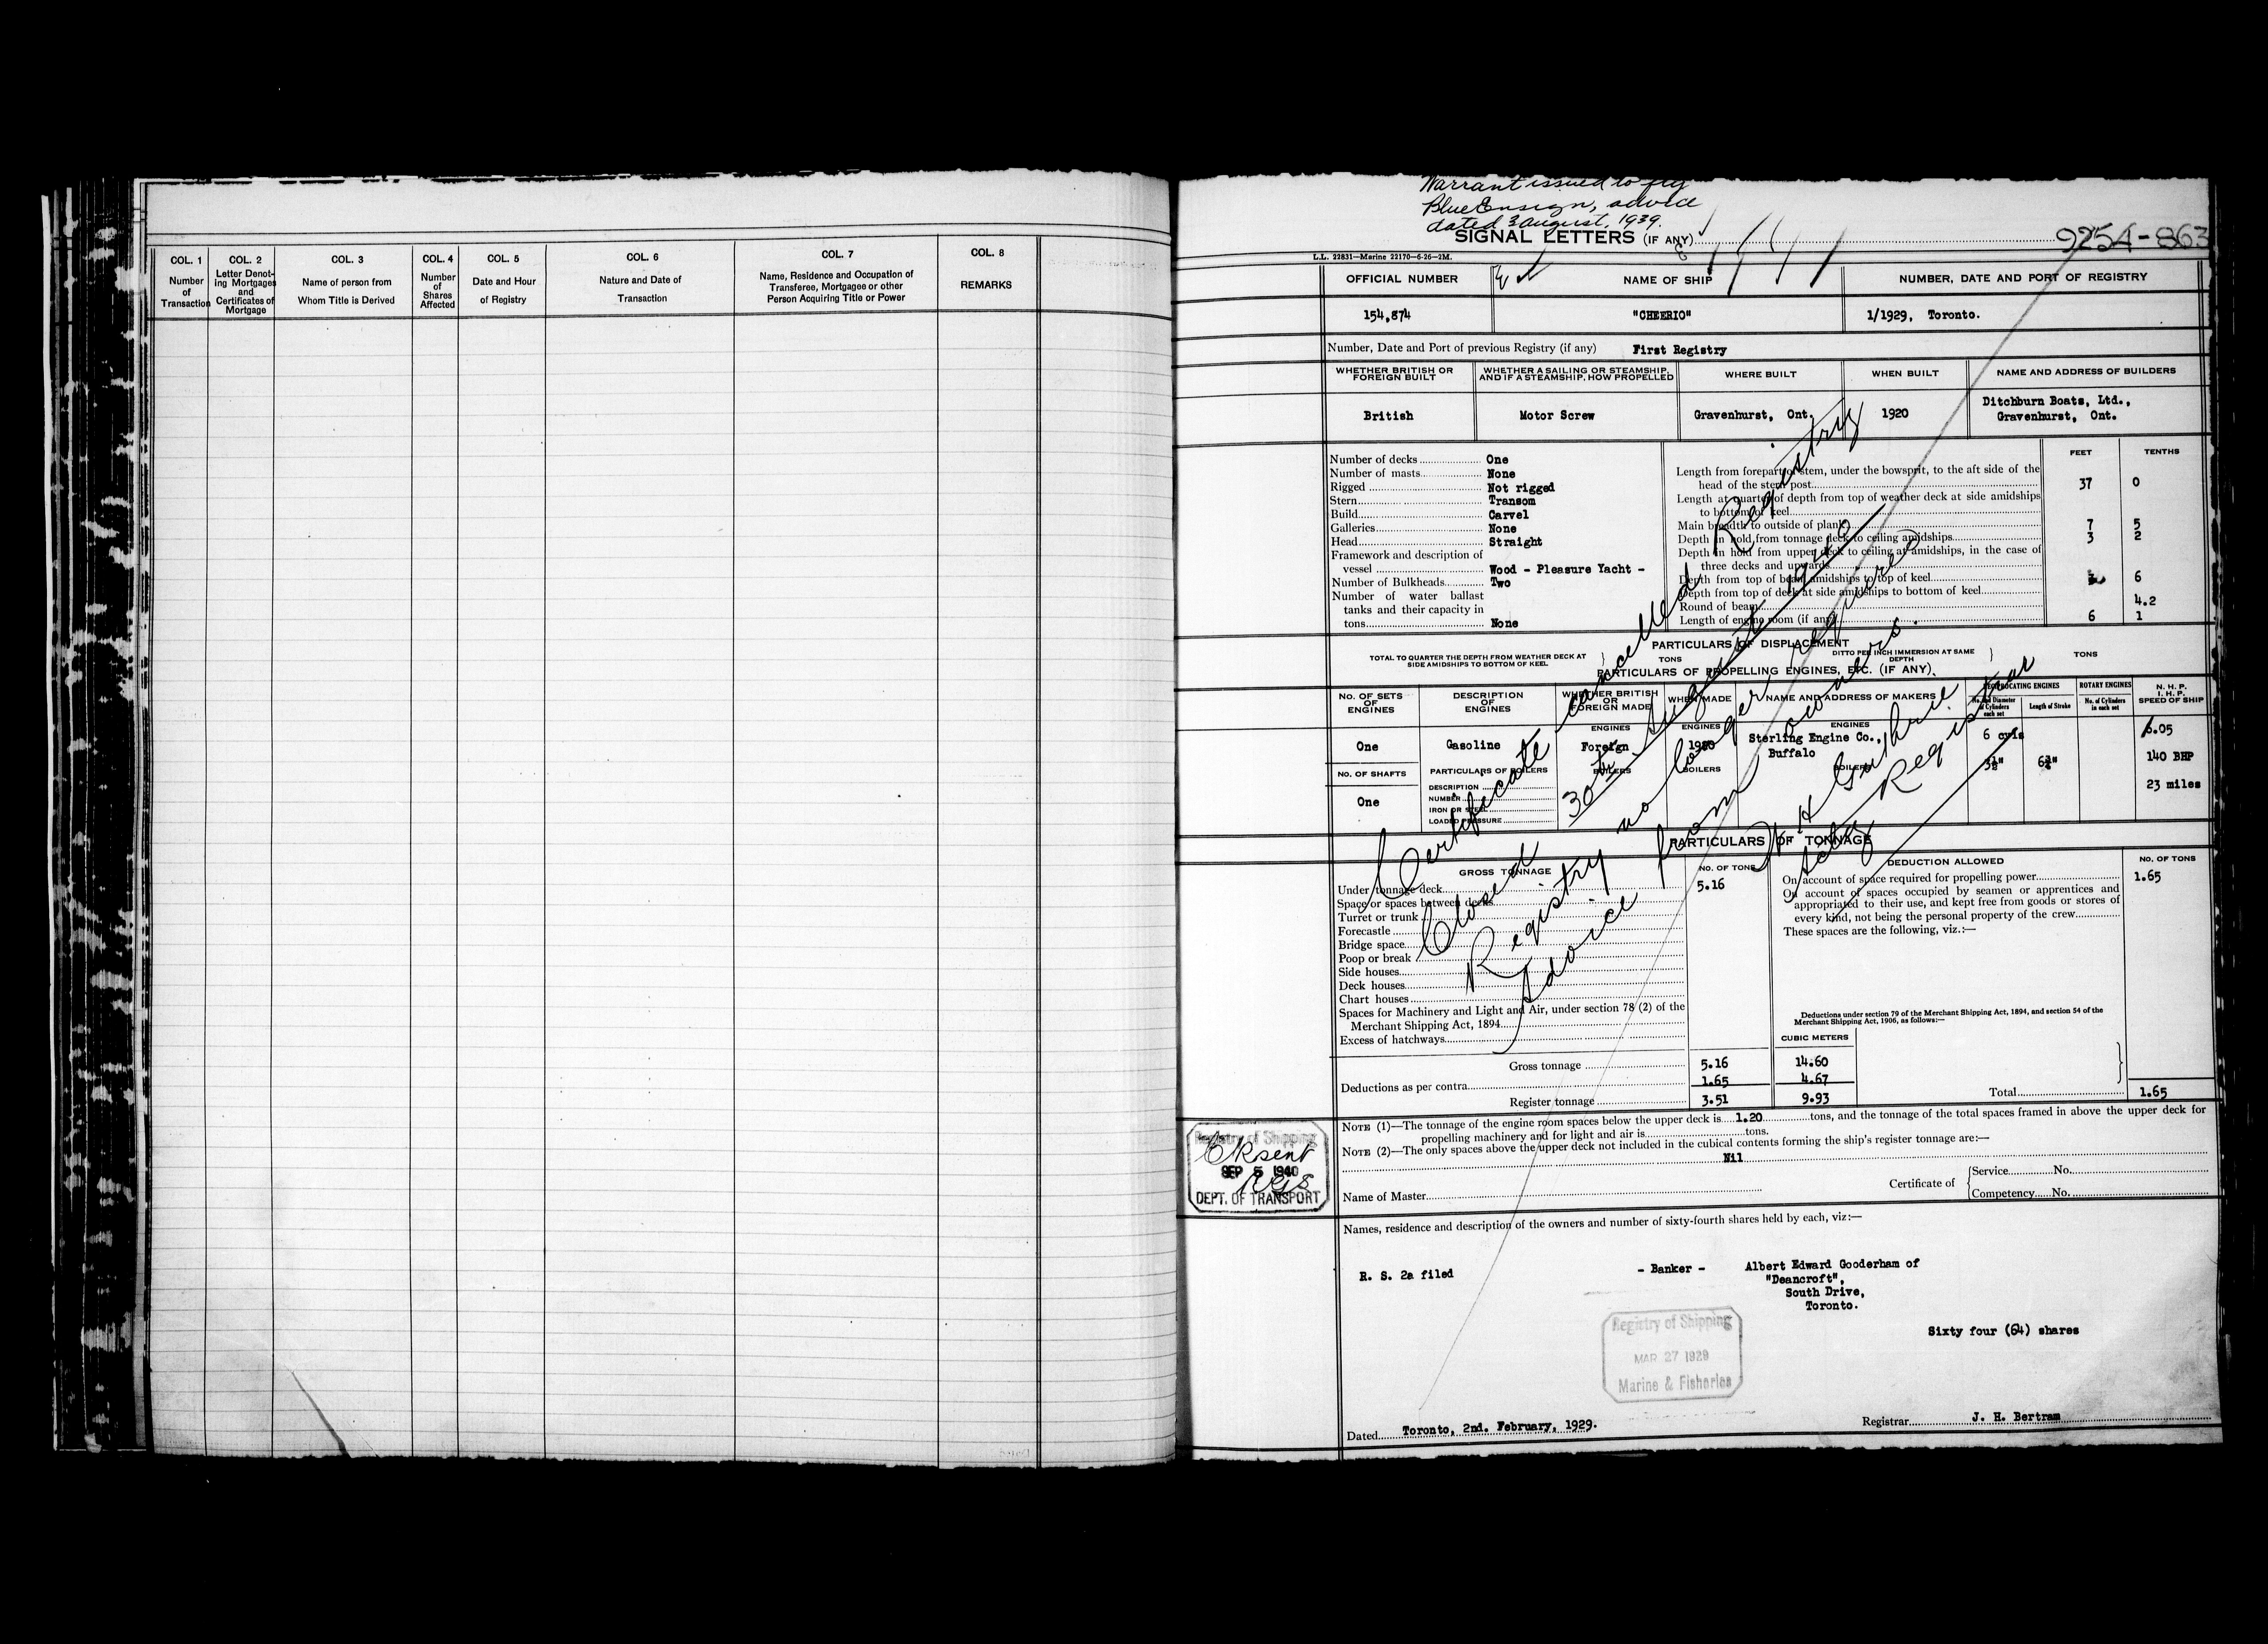 COL. 1
Number
of
Transaction
COL. 2
Letter Denot-
ing Mortgages
and
Certificates of
Mortgage
COL. 3
Name of person from
Whom Title is Derived
COL. 4
Number
of
Shares
Affected
COL. 5
Date and Hour
of Registry
COL. 6
Nature and Date of
Transaction
COL. 7
Name, Residence and Occupation of
Transferee, Mortgagee or other
Person Acquiring Title or Power
COL. 8
REMARKS
Warrant issued to fly
Blue Ensign, advice
dated 3 August, 1939.
SIGNAL LETTERS (IF ANY)
9254-863
L.L. 22831—Marine 22170—6-26—2M.
OFFICIAL NUMBER
NAME OF SHIP
NUMBER, DATE AND PORT OF REGISTRY
154,874
"CHEERIO"
1/1929, Toronto.
Number, Date and Port of previous Registry (if any) First Registry
WHETHER BRITISH OR
FOREIGN BUILT
WHETHER A SAILING OR STEAMSHIP,
AND IF A STEAMSHIP, HOW PROPELLED
WHERE BUILT
WHEN BUILT
NAME AND ADDRESS OF BUILDERS
British
Motor Screw
Gravenhurst, Ont.
1920
Ditchburn Boats, Ltd.,
Gravenhurst, Ont.
Number of decks One
Number of masts None
Rigged Not rigged
Stern Transom
Build Carvel
Galleries None
Head Straight
Framework and description of
vessel Wood - Pleasure Yacht -
Number of Bulkheads Two
Number of water ballast
tanks and their capacity in
tons None
FEET TENTHS
Length from forepart of stem, under the bowsprit, to the aft side of the
head of the stern post 37 0
Length at quarter of depth from top of weather deck at side amidships
to bottom of keel
Main breadth to outside of plank 7 5
Depth in hold from tonnage deck to ceiling amidships 3 2
Depth in hold from upper deck to ceiling at amidships, in the case of
three decks and upwards
Depth from top of beam amidships to top of keel 6
Depth from top of deck at side amidships to bottom of keel
Round of beam 4.2
Length of engine room (if any) 6 1
PARTICULARS OF DISPLACEMENT
TOTAL TO QUARTER THE DEPTH FROM WEATHER DECK AT
SIDE AMIDSHIPS TO BOTTOM OF KEEL
TONS
DITTO PER INCH IMMERSION AT SAME
DEPTH
TONS
PARTICULARS OF PROPELLING ENGINES, ETC. (IF ANY).
NO. OF SETS
OF
ENGINES
DESCRIPTION
OF
ENGINES
WHETHER BRITISH
OR
FOREIGN MADE
WHEN MADE
NAME AND ADDRESS OF MAKERS
RECIPROCATING ENGINES
No. and Diameter
of Cylinders
each set
Length of Stroke
ROTARY ENGINES
No. of Cylinders
in each set
N. H. P.
I. H. P.
SPEED OF SHIP
ENGINES
ENGINES
ENGINES
One
Gasoline
Foreign
Sterling Engine Co.,
Buffalo
6 cyls
6.05
NO. OF SHAFTS
PARTICULARS OF BOILERS
BOILERS
BOILERS
BOILERS
140 BHP
DESCRIPTION
NUMBER
IRON OR STEEL
LOADED PRESSURE
One
23 miles
PARTICULARS OF TONNAGE
GROSS TONNAGE
NO. OF TONS
DEDUCTION ALLOWED
NO. OF TONS
Under tonnage deck 5.16
Space or spaces between decks
Turret or trunk
Forecastle
Bridge space
Poop or break
Side houses
Deck houses
Chart houses
Spaces for Machinery and Light and Air, under section 78 (2) of the
Merchant Shipping Act, 1894
Excess of hatchways
On account of space required for propelling power 1.65
On account of spaces occupied by seamen or apprentices and
appropriated to their use, and kept free from goods or stores of
every kind, not being the personal property of the crew
These spaces are the following, viz.:—
Deductions under section 79 of the Merchant Shipping Act, 1894, and section 54 of the
Merchant Shipping Act, 1906, as follows:—
CUBIC METERS
Gross tonnage 5.16 14.60
Deductions as per contra 1.65 4.67
Register tonnage 3.51 9.93
Total 1.65
Certificate cancelled Registry
Closed 30th August 1940
Registry no longer required
Advice from owners.
Guthrie
Actg Registrar
NOTE (1)—The tonnage of the engine room spaces below the upper deck is 1.20 tons, and the tonnage of the total spaces framed in above the upper deck for
propelling machinery and for light and air is tons.
NOTE (2)—The only spaces above the upper deck not included in the cubical contents forming the ship's register tonnage are:—
Nil
Name of Master
Certificate of
Service No.
Competency No.
Registry of Shipping
SEP 5 1940
DEPT. OF TRANSPORT
Names, residence and description of the owners and number of sixty-fourth shares held by each, viz:—
R. S. 2a filed
- Banker -
Albert Edward Gooderham of
"Deancroft",
South Drive,
Toronto.
Sixty four (64) shares
Registry of Shipping
MAR 27 1929
Marine & Fisheries
Dated Toronto, 2nd. February, 1929.
Registrar J. H. Bertram